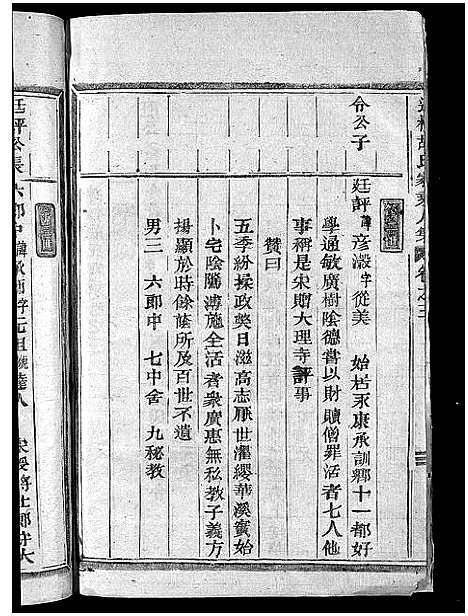 令公子
廷評 諱彥澱 字從美 始居永康承訓鄉十一都好
學通敏廣樹陰德嘗以財贖僧罪活者七人他
事稱是宋贈大理寺評事
贊曰
五季紛揉政獘日滋高志厭世濯纓華溪實始
卜宅陰隲溥施全活者衆廣惠無私教子義方
揚顯於時餘蔭所及百世不遺
男三 六郎中 七中舍 九秘教
廷評公長 六郎中